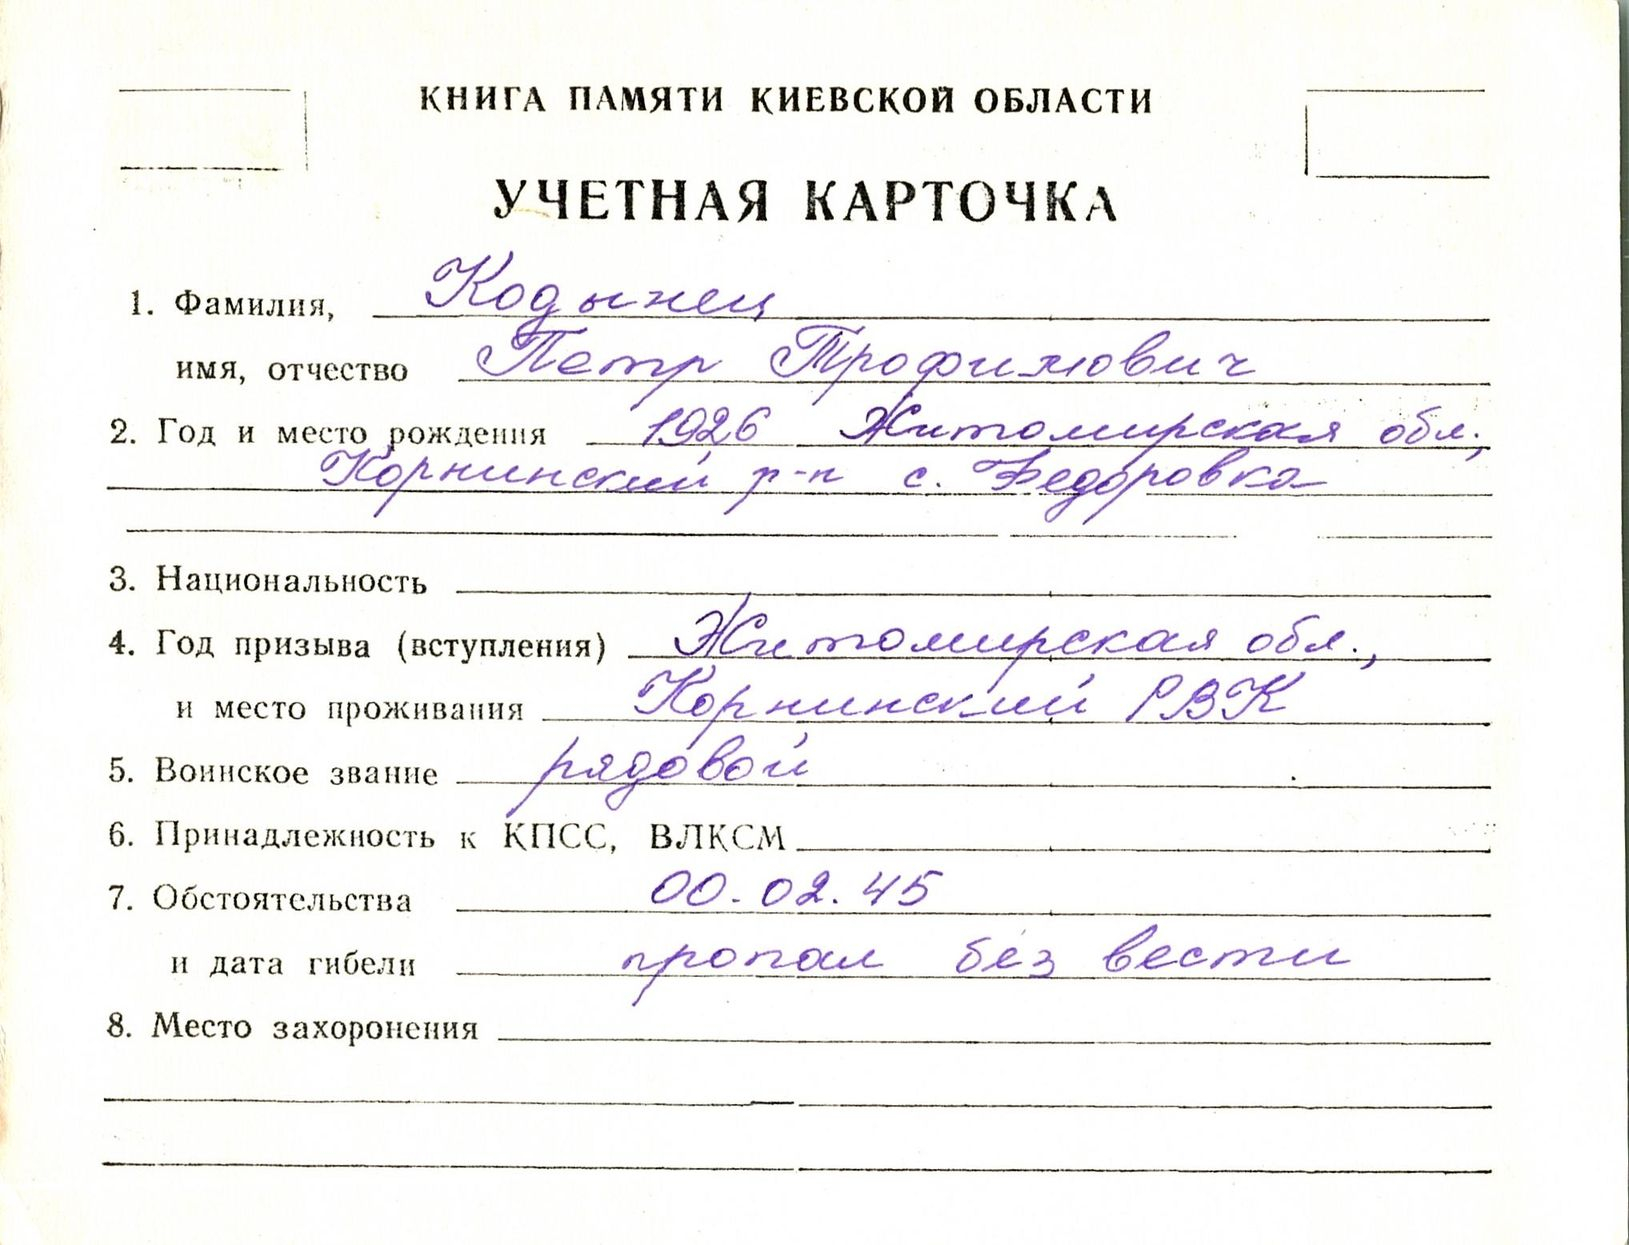 КНИГА ПАМЯТИ КИЕВСКОЙ ОБЛАСТИ
УЧЕТНАЯ КАРТОЧКА
1. Фамилия, Кодынец
имя, отчество Петр Трофимович
2. Год и место рождения 1926 Житомирская обл.,
Корнинский р-н с. Федоровка
3. Национальность
4. Год призыва (вступления) Житомирская обл.,
и место проживания Корнинский РВК
5. Воинское звание рядовой
6. Принадлежность к КПСС, ВЛКСМ
7. Обстоятельства 00.02.45
и дата гибели пропал без вести
8. Место захоронения